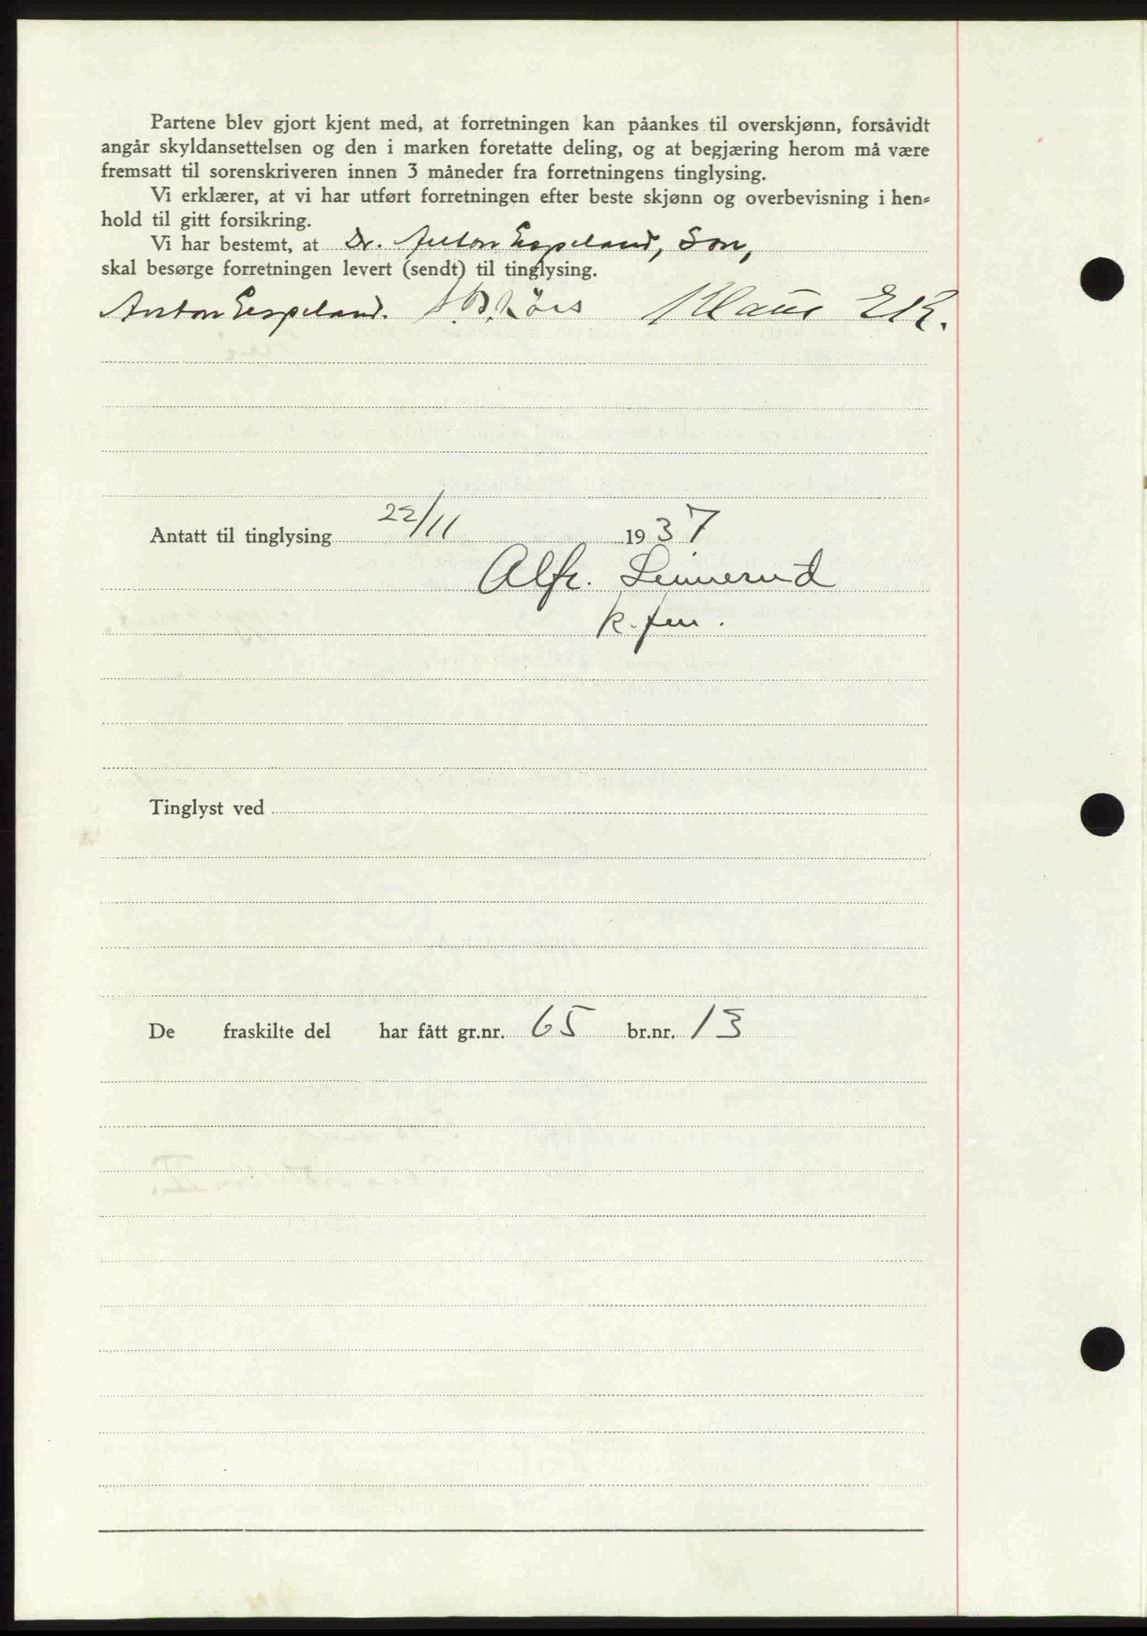 Partene blev gjort kjent med, at forretningen kan påankes til overskjønn, forsåvidt
angår skyldansettelsen og den i marken foretatte deling, og at begjæring herom må være
fremsatt til sorenskriveren innen 3 måneder fra forretningens tinglysing.
Vi erklærer, at vi har utført forretningen efter beste skjønn og overbevisning i hen=
hold til gitt forsikring.
Vi har bestemt, at Dr. Anton Espeland, Son,
skal besørge forretningen levert (sendt) til tinglysing.
Anton Espeland. Klaus Ek.
Antatt til tinglysing 22/11 1937
Alfr.
Tinglyst ved
De fraskilte del har fått gr.nr. 65 br.nr. 13